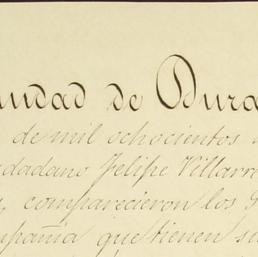 iudad de Dura
de mil ochocientos
dadano Felipe Villarre
comparecieron los
mpañia que tienen su